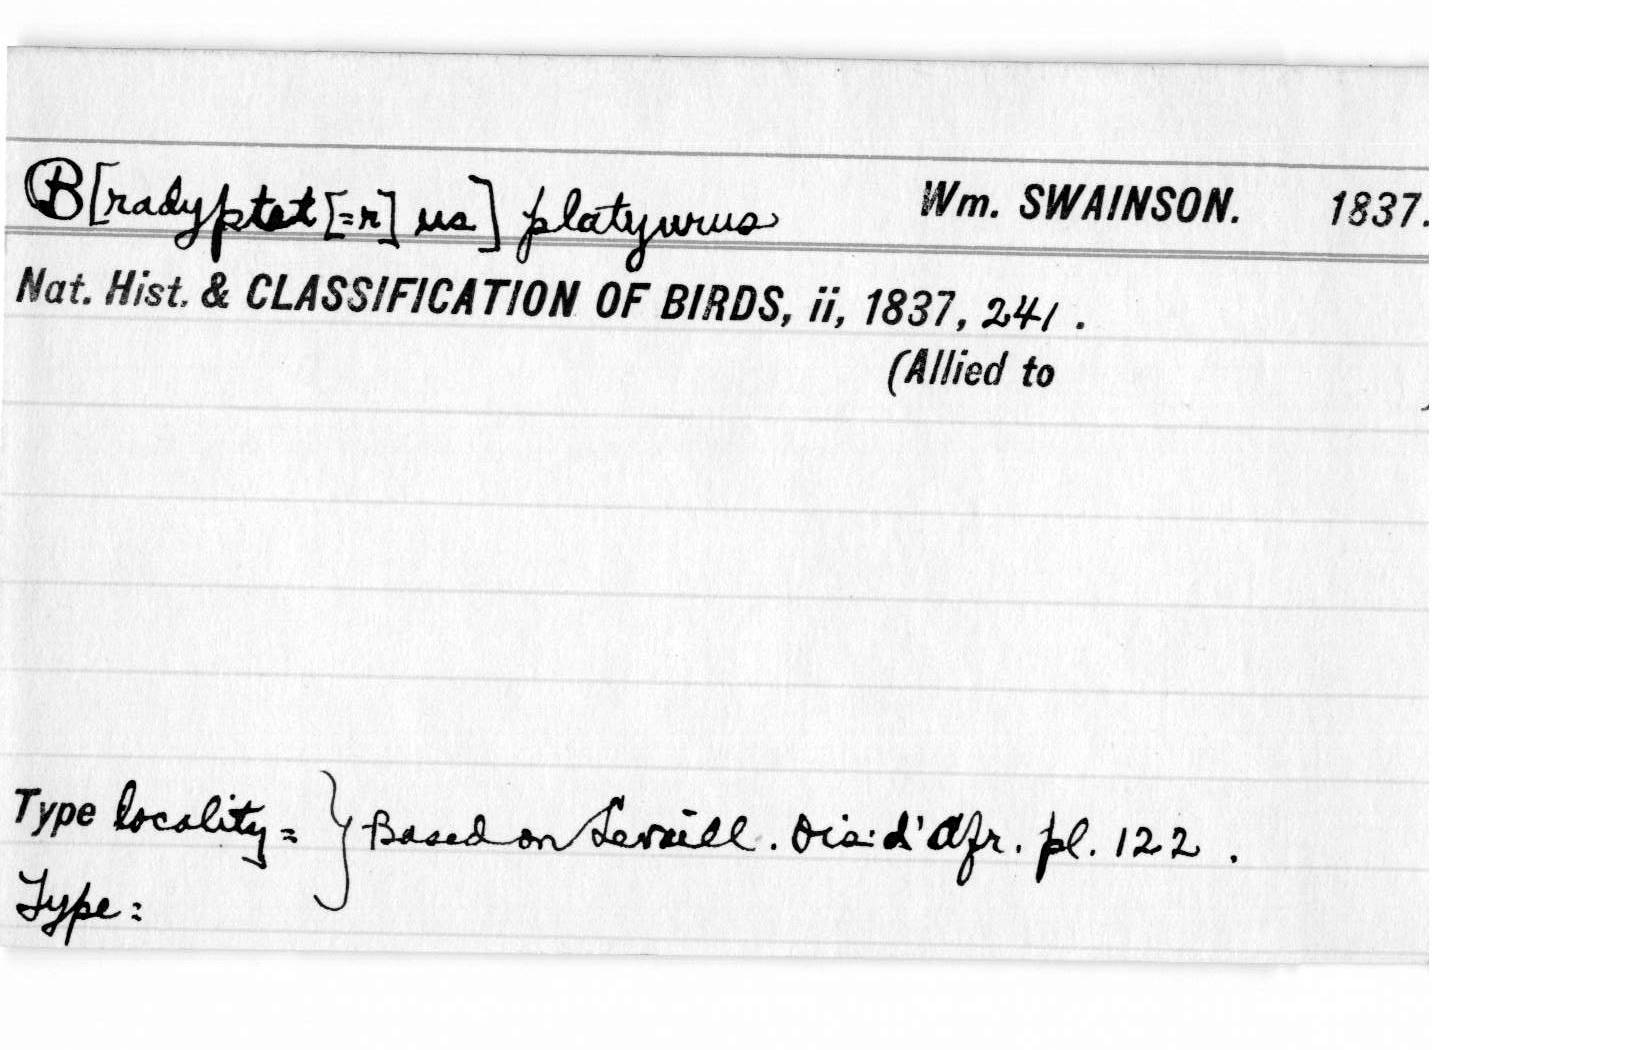 B[radyptet[=r]us] platyurus Wm. SWAINSON. 1837.
Nat. Hist. & CLASSIFICATION OF BIRDS, ii, 1837, 241.
(Allied to )
Type locality = } Based on Levaill. Ois. d'Afr. pl. 122.
Type: